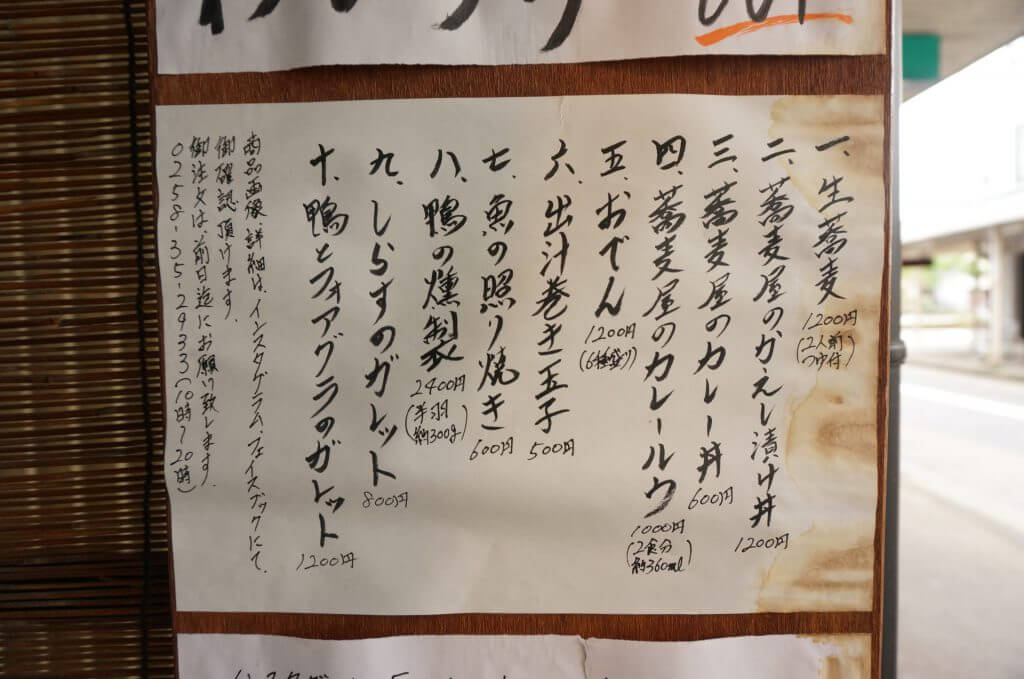 一、生蕎麦 1200円
(2人前
つゆ付)
二、蕎麦屋のかえし漬け丼 1200円
三、蕎麦屋のカレー丼 600円
四、蕎麦屋のカレールウ 1000円
(2食分
約360ml)
五、おでん 1200円
(6種盛り)
六、出汁巻き玉子 500円
七、魚の照り焼き 600円
八、鴨の燻製 2400円
(半羽
約300g)
九、しらすのガレット 800円
十、鴨とフォアグラのガレット 1200円
商品画像、詳細は、インスタグラム、フェイスブックにて、
御確認頂けます。
御注文は、前日迄にお願い致します。
0258-35-2933(10時〜20時)